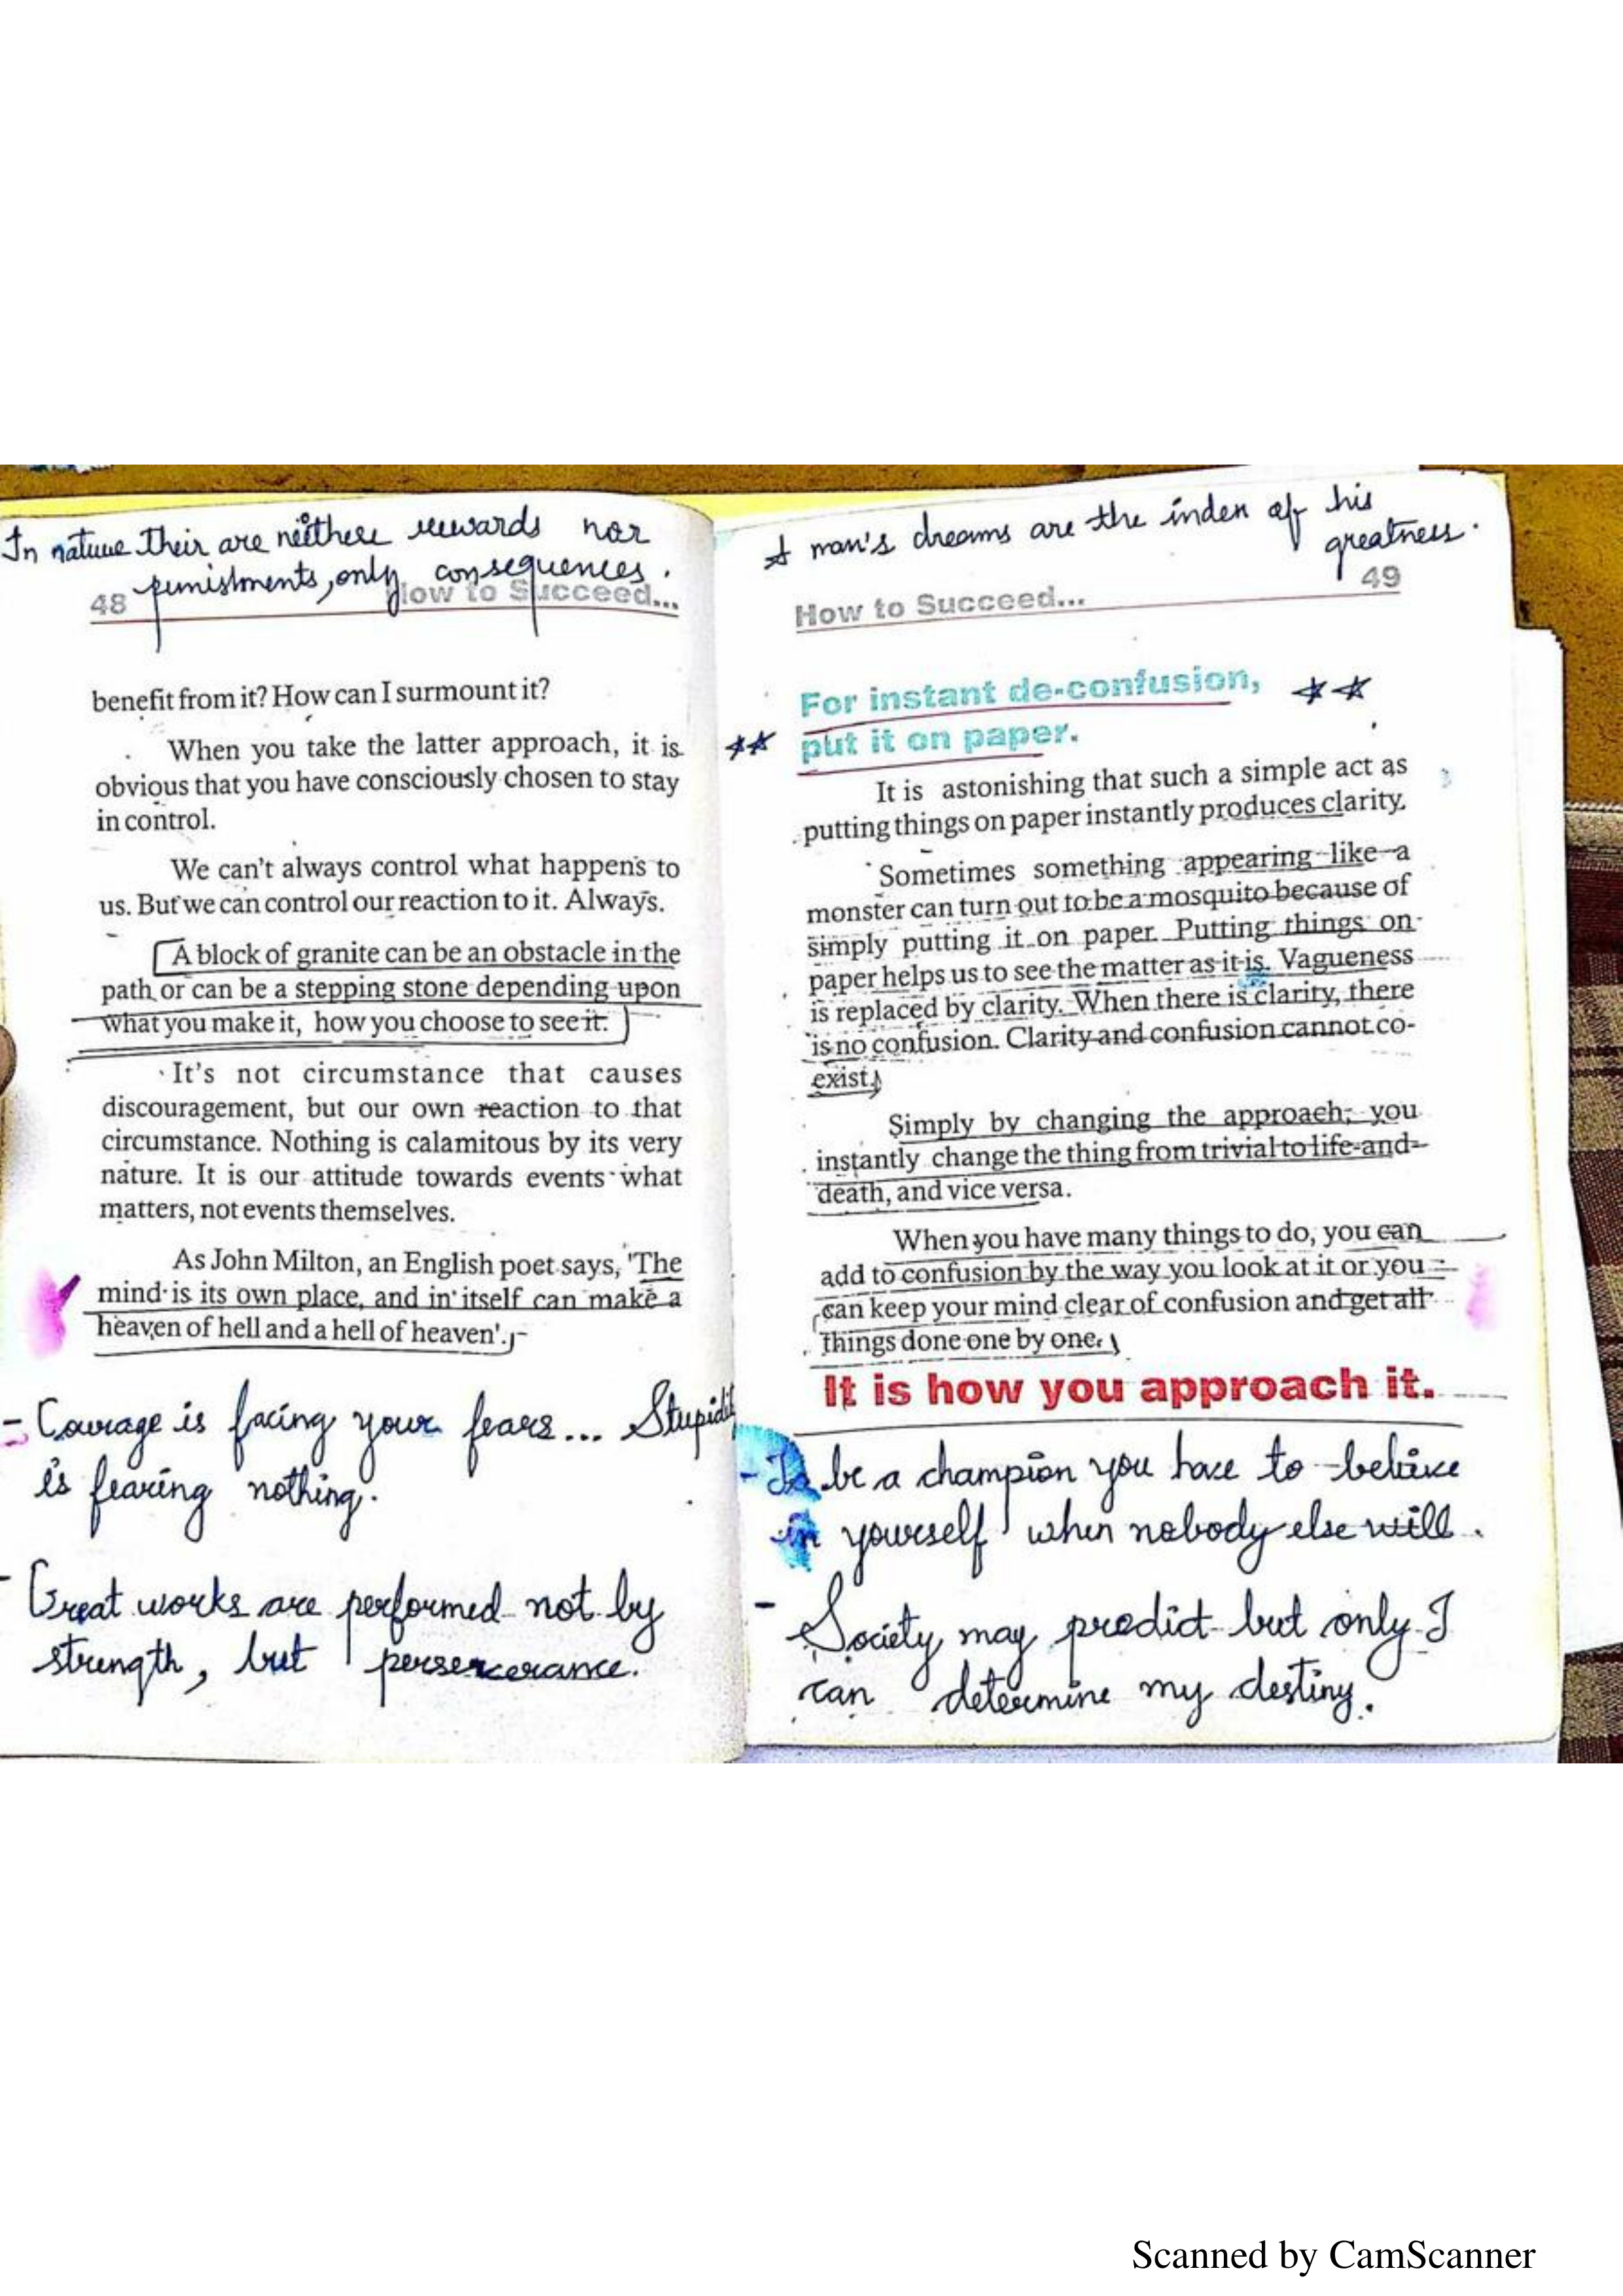 In nature their are neithere rewards nor
punishments, only consequences.
48 How to Succeed...
benefit from it? How can I surmount it?
When you take the latter approach, it is
obvious that you have consciously chosen to stay
in control.
We can't always control what happens to
us. But we can control our reaction to it. Always.
A block of granite can be an obstacle in the
path or can be a stepping stone depending upon
what you make it, how you choose to see it.
It's not circumstance that causes
discouragement, but our own reaction to that
circumstance. Nothing is calamitous by its very
nature. It is our attitude towards events what
matters, not events themselves.
As John Milton, an English poet says, 'The
mind is its own place, and in itself can make a
heaven of hell and a hell of heaven'.
- Courage is facing your fears... Stupidit
is fearing nothing.
- Great works are performed not by
strength, but perservcerance.
A man's dreams are the index of his
greatness.
How to Succeed... 49
For instant de-confusion,
put it on paper.
It is astonishing that such a simple act as
putting things on paper instantly produces clarity.
Sometimes something appearing like a
monster can turn out to be a mosquito because of
simply putting it on paper. Putting things on
paper helps us to see the matter as it is. Vagueness
is replaced by clarity. When there is clarity, there
is no confusion. Clarity and confusion cannot co-
exist.
Simply by changing the approach, you
instantly change the thing from trivial to life-and-
death, and vice versa.
When you have many things to do, you can
add to confusion by the way you look at it or you
can keep your mind clear of confusion and get all
things done one by one.
It is how you approach it.
- To be a champion you have to beleive
in yourself when nobody else will.
- Society may predict but only I
can determine my destiny.
Scanned by CamScanner